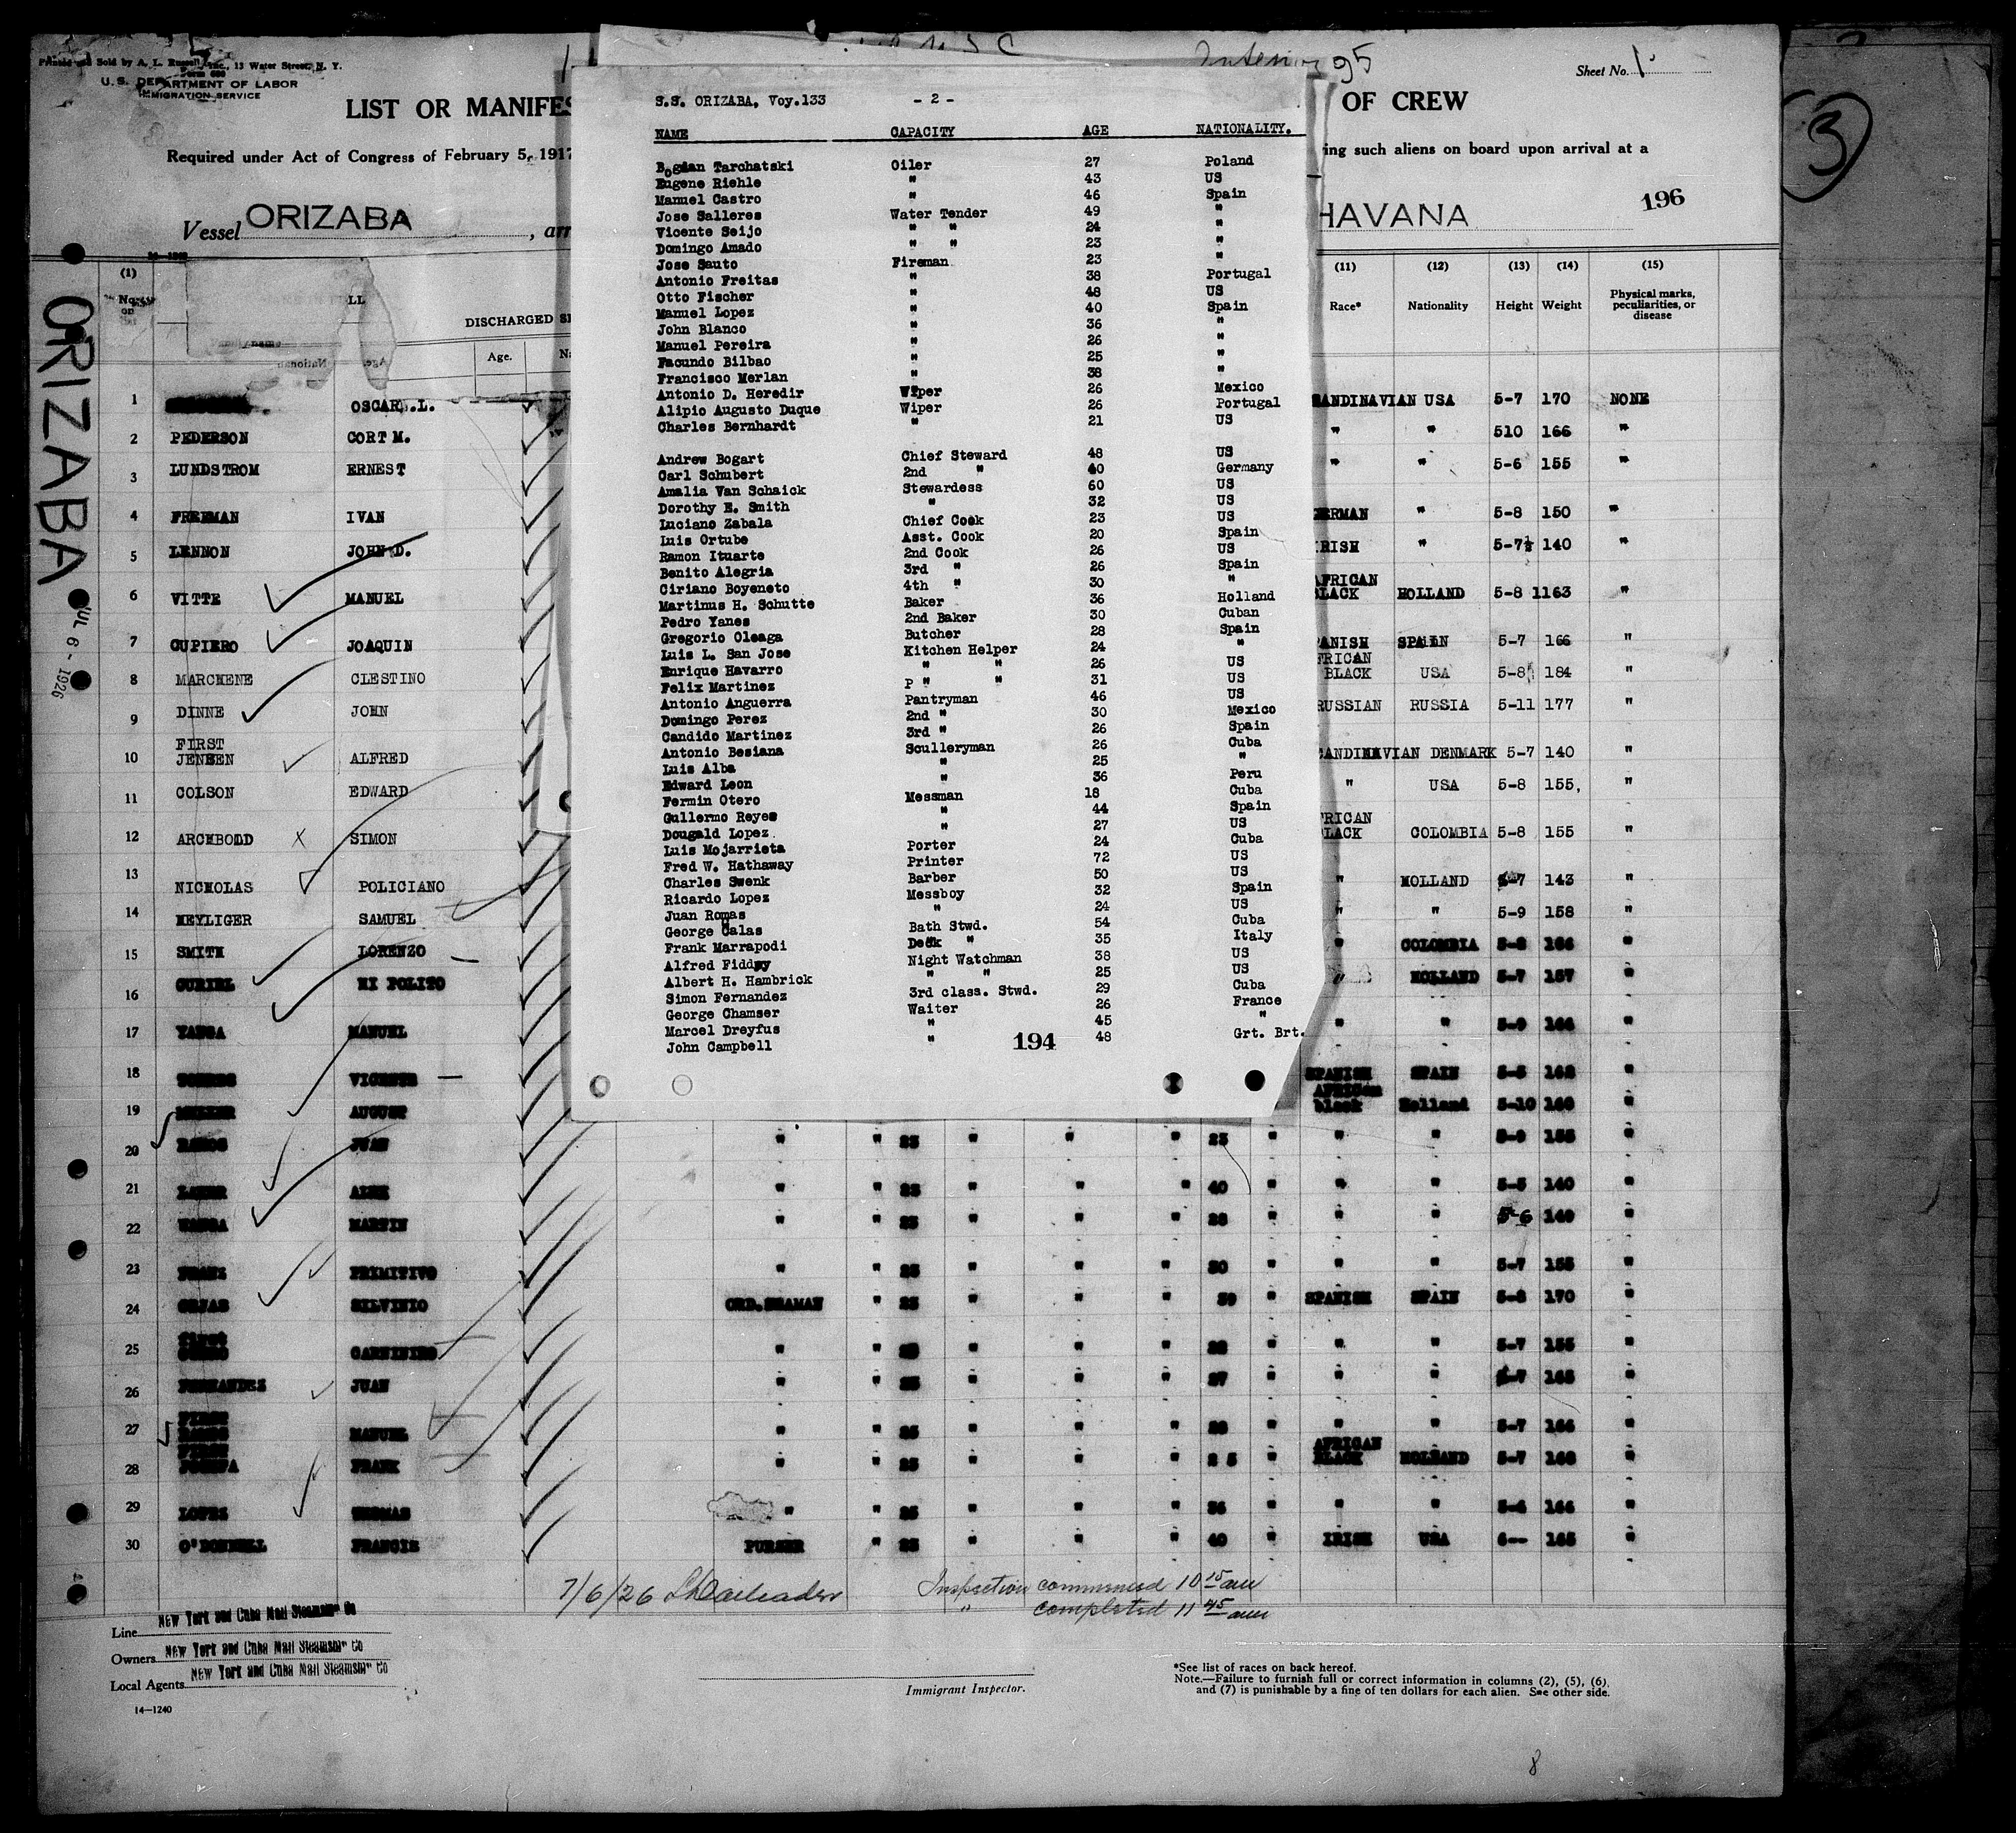 Printed and Sold by A. L. Russell, Inc., 13 Water Street, N. Y.
Form 680
U. S. DEPARTMENT OF LABOR
IMMIGRATION SERVICE
Sheet No. 1
LIST OR MANIFES
OF CREW
Required under Act of Congress of February 5, 1917
ing such aliens on board upon arrival at a
Vessel ORIZABA, arr
HAVANA
196
3
95
ORIZABA
JUL 6 - 1926
S.S. ORIZABA, Voy.133 - 2 -
NAME CAPACITY AGE NATIONALITY.
Bogdan Tarchatski Oiler 27 Poland
Eugene Riehle " 43 US
Manuel Castro " 46 Spain
Jose Salleres Water Tender 49 "
Vicente Seijo " " 24 "
Domingo Amado " " 23 "
Jose Sauto Fireman 23 "
Antonio Freitas " 38 Portugal
Otto Fischer " 48 US
Manuel Lopez " 40 Spain
John Blanco " 36 "
Manuel Pereira " 26 "
Facundo Bilbao " 25 "
Francisco Merlan " 38 "
Antonio D. Heredir Wiper 26 Mexico
Alipio Augusto Duque Wiper 26 Portugal
Charles Bernhardt " 21 US
Andrew Bogart Chief Steward 48 US
Carl Schubert 2nd " 40 Germany
Amalia Van Schaick Stewardess 60 US
Dorothy E. Smith " 32 US
Luciano Zabala Chief Cook 23 US
Luis Ortube Asst. Cook 20 Spain
Ramon Ituarte 2nd Cook 26 US
Benito Alegria 3rd " 26 Spain
Ciriano Boyeneto 4th " 30 "
Martinus H. Schutte Baker 36 Holland
Pedro Yanes 2nd Baker 30 Cuban
Gregorio Oleaga Butcher 28 Spain
Luis L. San Jose Kitchen Helper 24 "
Enrique Havarro " " 26 US
Felix Martinez P " " 31 US
Antonio Anguerra Pantryman 46 US
Domingo Perez 2nd " 30 Mexico
Candido Martinez 3rd " 26 Spain
Antonio Besiana Sculleryman 26 Cuba
Luis Alba " 25 "
Edward Leon " 36 Peru
Fermin Otero Messman 18 Cuba
Gullermo Reyes " 44 Spain
Dougald Lopez " 27 US
Luis Mojarrieta Porter 24 Cuba
Fred W. Hathaway Printer 72 US
Charles Swenk Barber 50 US
Ricardo Lopez Messboy 32 Spain
Juan Romas " 24 US
George Calas Bath Stwd. 54 Cuba
Frank Marrapodi Deck " 35 Italy
Alfred Fidday Night Watchman 38 US
Albert H. Hambrick " " 25 US
Simon Fernandez 3rd class. Stwd. 29 Cuba
George Chamser Waiter 26 France
Marcel Dreyfus " 45 "
John Campbell " 48 Grt. Brt.
194
(1) (11) (12) (13) (14) (15)
No. on
DISCHARGED
Age.
Race* Nationality Height Weight Physical marks, peculiarities, or disease
1 OSCAR .L. ANDINAVIAN USA 5-7 170 NONE
2 PEDERSON CORT M. " " 510 166 "
3 LUNDSTROM ERNEST " " 5-6 155 "
4 FREEMAN IVAN GERMAN " 5-8 150 "
5 LENNON JOHN D. IRISH " 5-7½ 140 "
6 VITTE MANUEL AFRICAN BLACK HOLLAND 5-8 1163 "
7 CUPIERO JOAQUIN PANISH SPAIN 5-7 166 "
8 MARCHENE CLESTINO FRICAN BLACK USA 5-8 184 "
9 DINNE JOHN RUSSIAN RUSSIA 5-11 177 "
10 FIRST JENSEN ALFRED CANDINAVIAN DENMARK 5-7 140 "
11 COLSON EDWARD " USA 5-8 155, "
12 ARCHBOLD X SIMON FRICAN LACK COLOMBIA 5-8 155 "
13 NICHOLAS POLICIANO " HOLLAND 5-7 143 "
14 HEYLIGER SAMUEL " " 5-9 158 "
15 SMITH LORENZO " COLOMBIA 5-8 166 "
16 CURIEL HI POLITO " HOLLAND 5-7 157 "
17 YANGA MANUEL " " 5-9 166 "
18 VICENTE SPANISH SPAIN 5-5 162 "
19 MULLER AUGUST AFRICan black Holland 5-10 160 "
20 RAMOS JUAN " " 25 " " " 23 " " " 5-9 155 "
21 " " 25 " " " 40 " " " 5-5 140 "
22 MARTIN " " 25 " " " 28 " " " 5-6 140 "
23 PRIMITIVO " " 25 " " " 30 " " " 5-7 155 "
24 SILVINIO ORD.SEAMAN " 25 " " " 39 " SPANISH SPAIN 5-8 170 "
25 first " " 25 " " " " " " 5-7 155 "
26 FERNANDEZ JUAN " " 25 " " " 27 " " " 5-7 165 "
27 FIRST MANUEL " " 25 " " " " " " 5-7 166 "
28 FIRST FRANK " " 25 " " " 2 5 " AFRICAN BLACK HOLLAND 5-7 168 "
29 LOPEZ THOMAS " " 25 " " " 36 " " " 5-6 166 "
30 O'DONNELL FRANCIS PURSER " 25 " " " 40 " IRISH USA 6-- 165 "
7/6/26
Inspection commenced 10 15 am
" completed 11 45 am
Line New York and Cuba Mail Steamship Co
Owners New York and Cuba Mail Steamship Co
Local Agents New York and Cuba Mail Steamship Co
14—1240
Immigrant Inspector.
*See list of races on back hereof.
Note.—Failure to furnish full or correct information in columns (2), (5), (6),
and (7) is punishable by a fine of ten dollars for each alien. See other side.
8